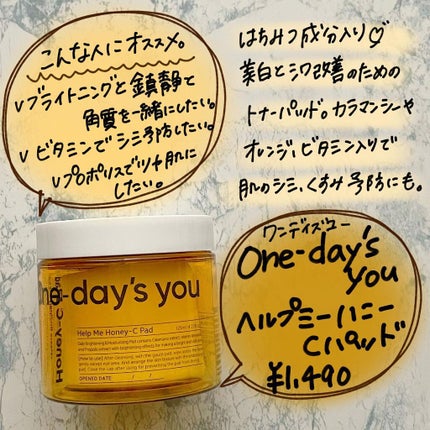 こんな人にオススメ。
∨ブライトニングと鎮静と
角質を一緒にしたい。
∨ビタミンでシミ予防したい。
∨プロポリスでツヤ肌に
したい。
はちみつ成分入り♡
美白とシワ改善のための
トナーパッド。カラマンシーや
オレンジ、ビタミン入りで
肌のシミ、くすみ予防にも。
ワンデイズユー
One-day's
you
ヘルプミーハニー
Cパッド
¥1,490
one-day's you
Help Me Honey-C Pad
Honey-C Pad
OPENED DATE / /